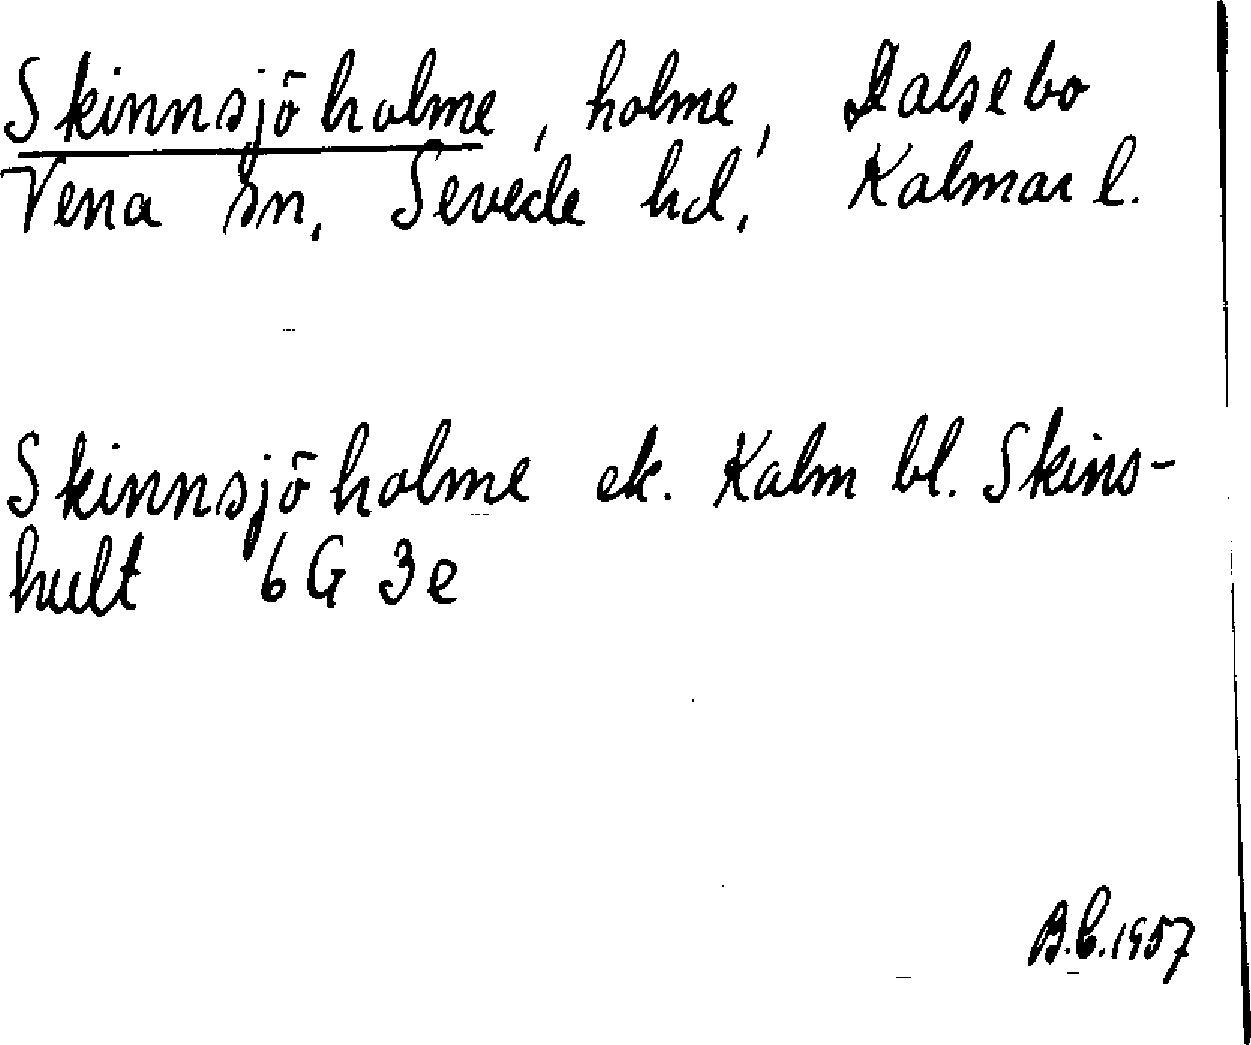 Skinnsjöholme, holme, Dalsebo
Vena sn, Sevede hd, Kalmar l.
Skinnsjöholme ek. Kalm bl. Skins-
hult 6G 3e
B.C. 1957